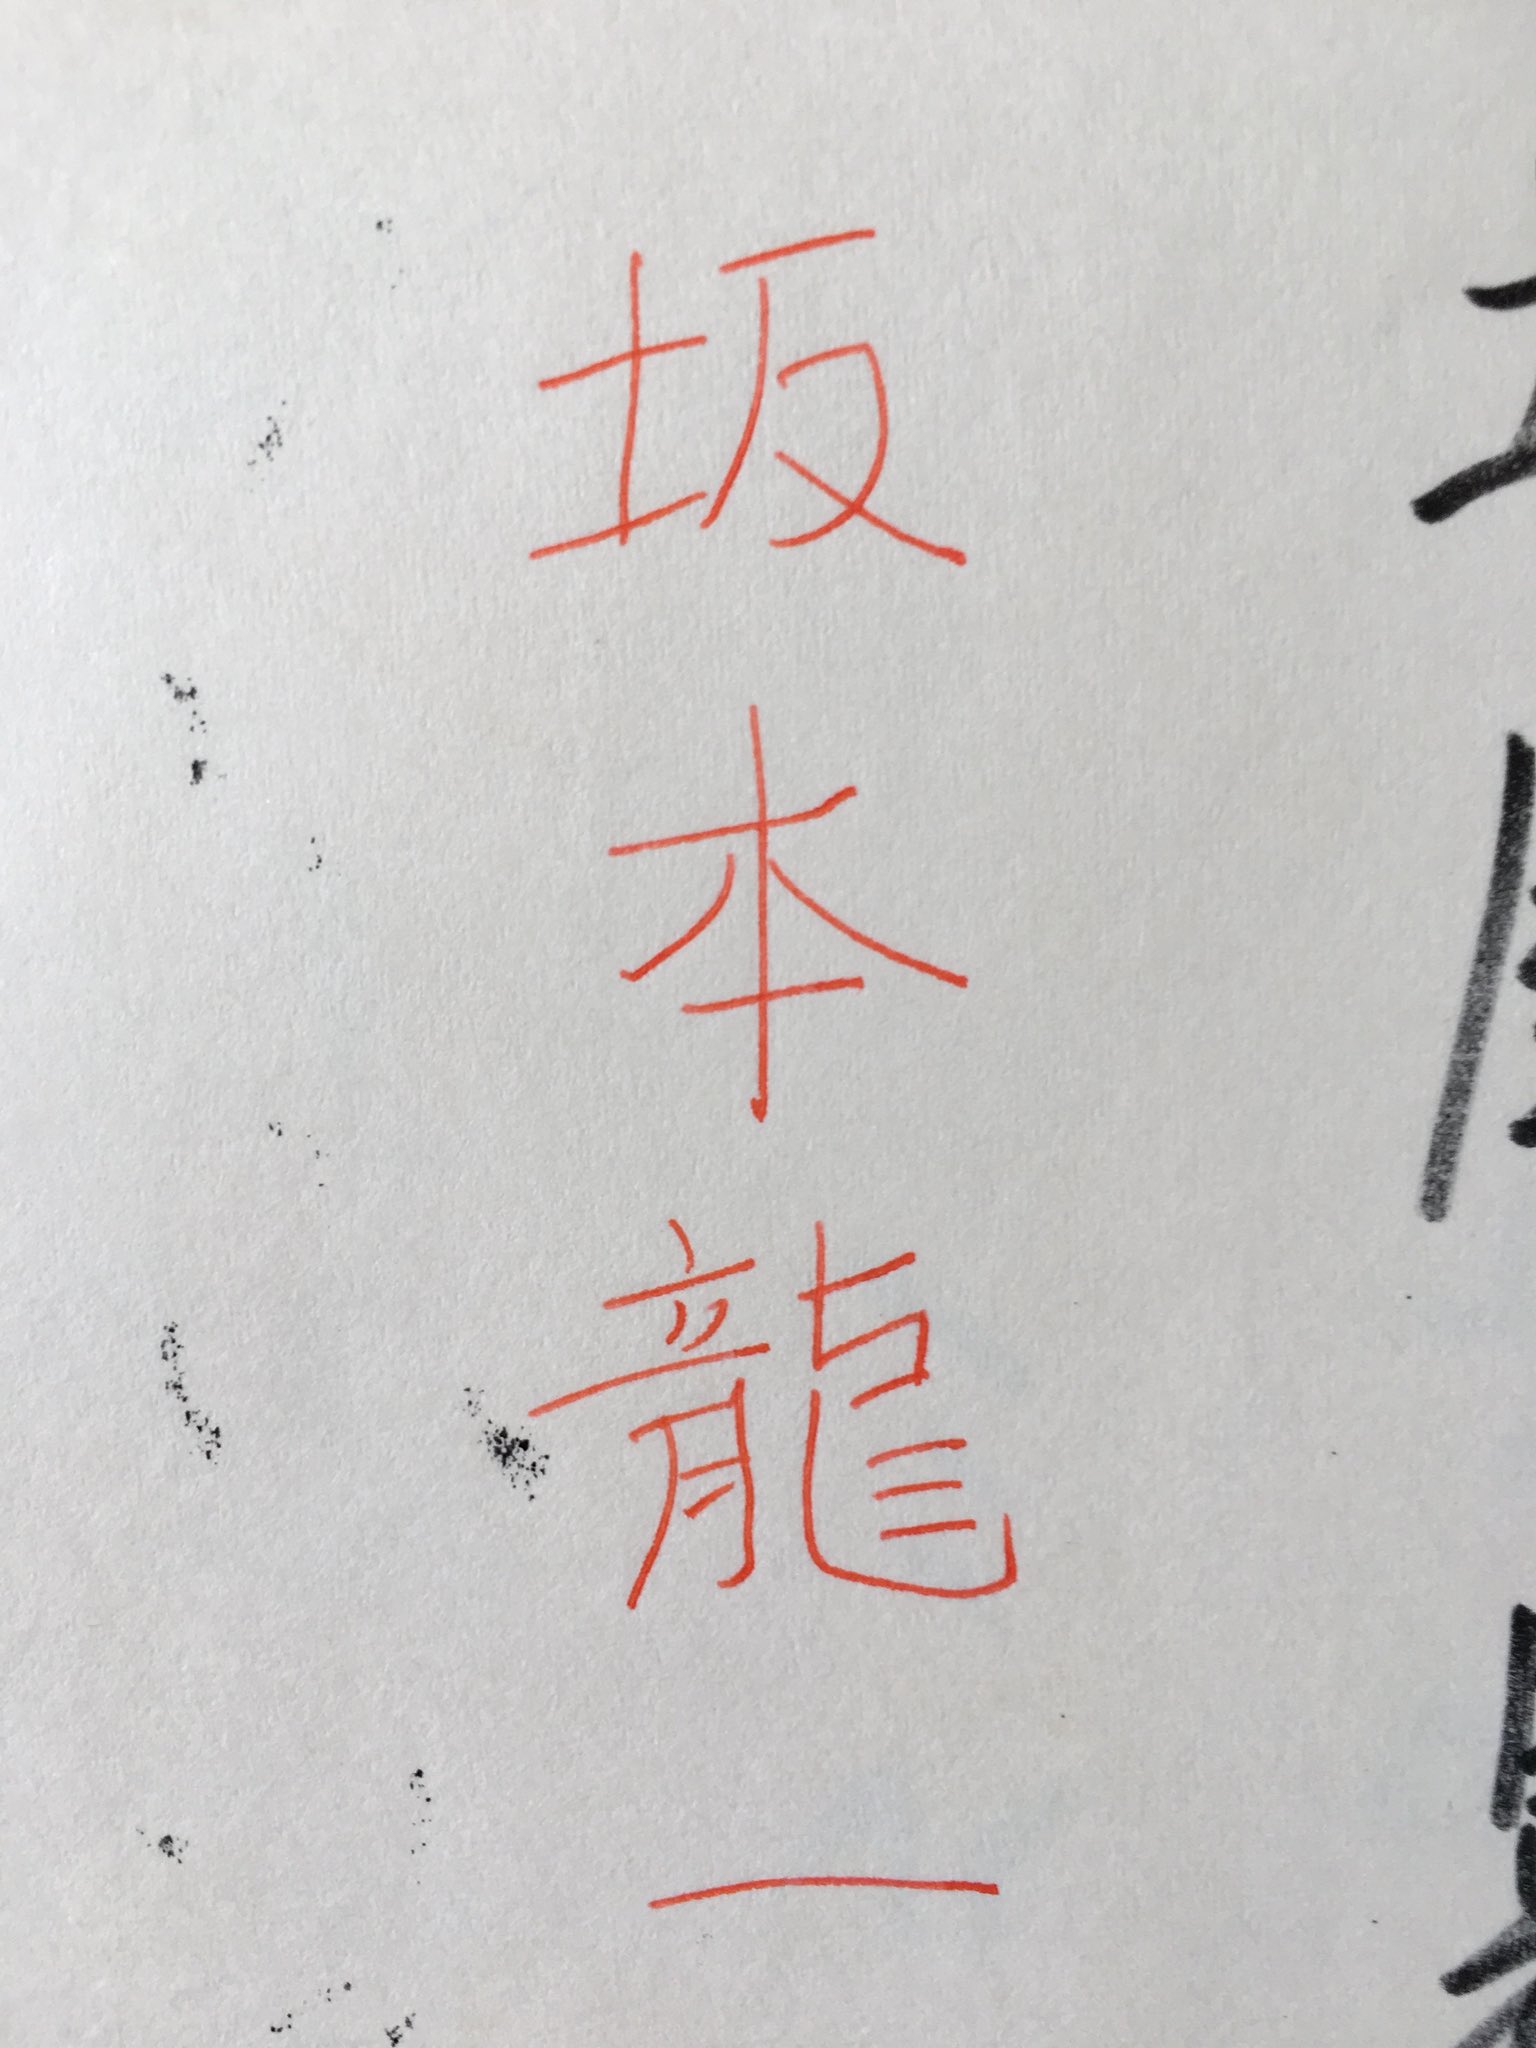 坂本龍一